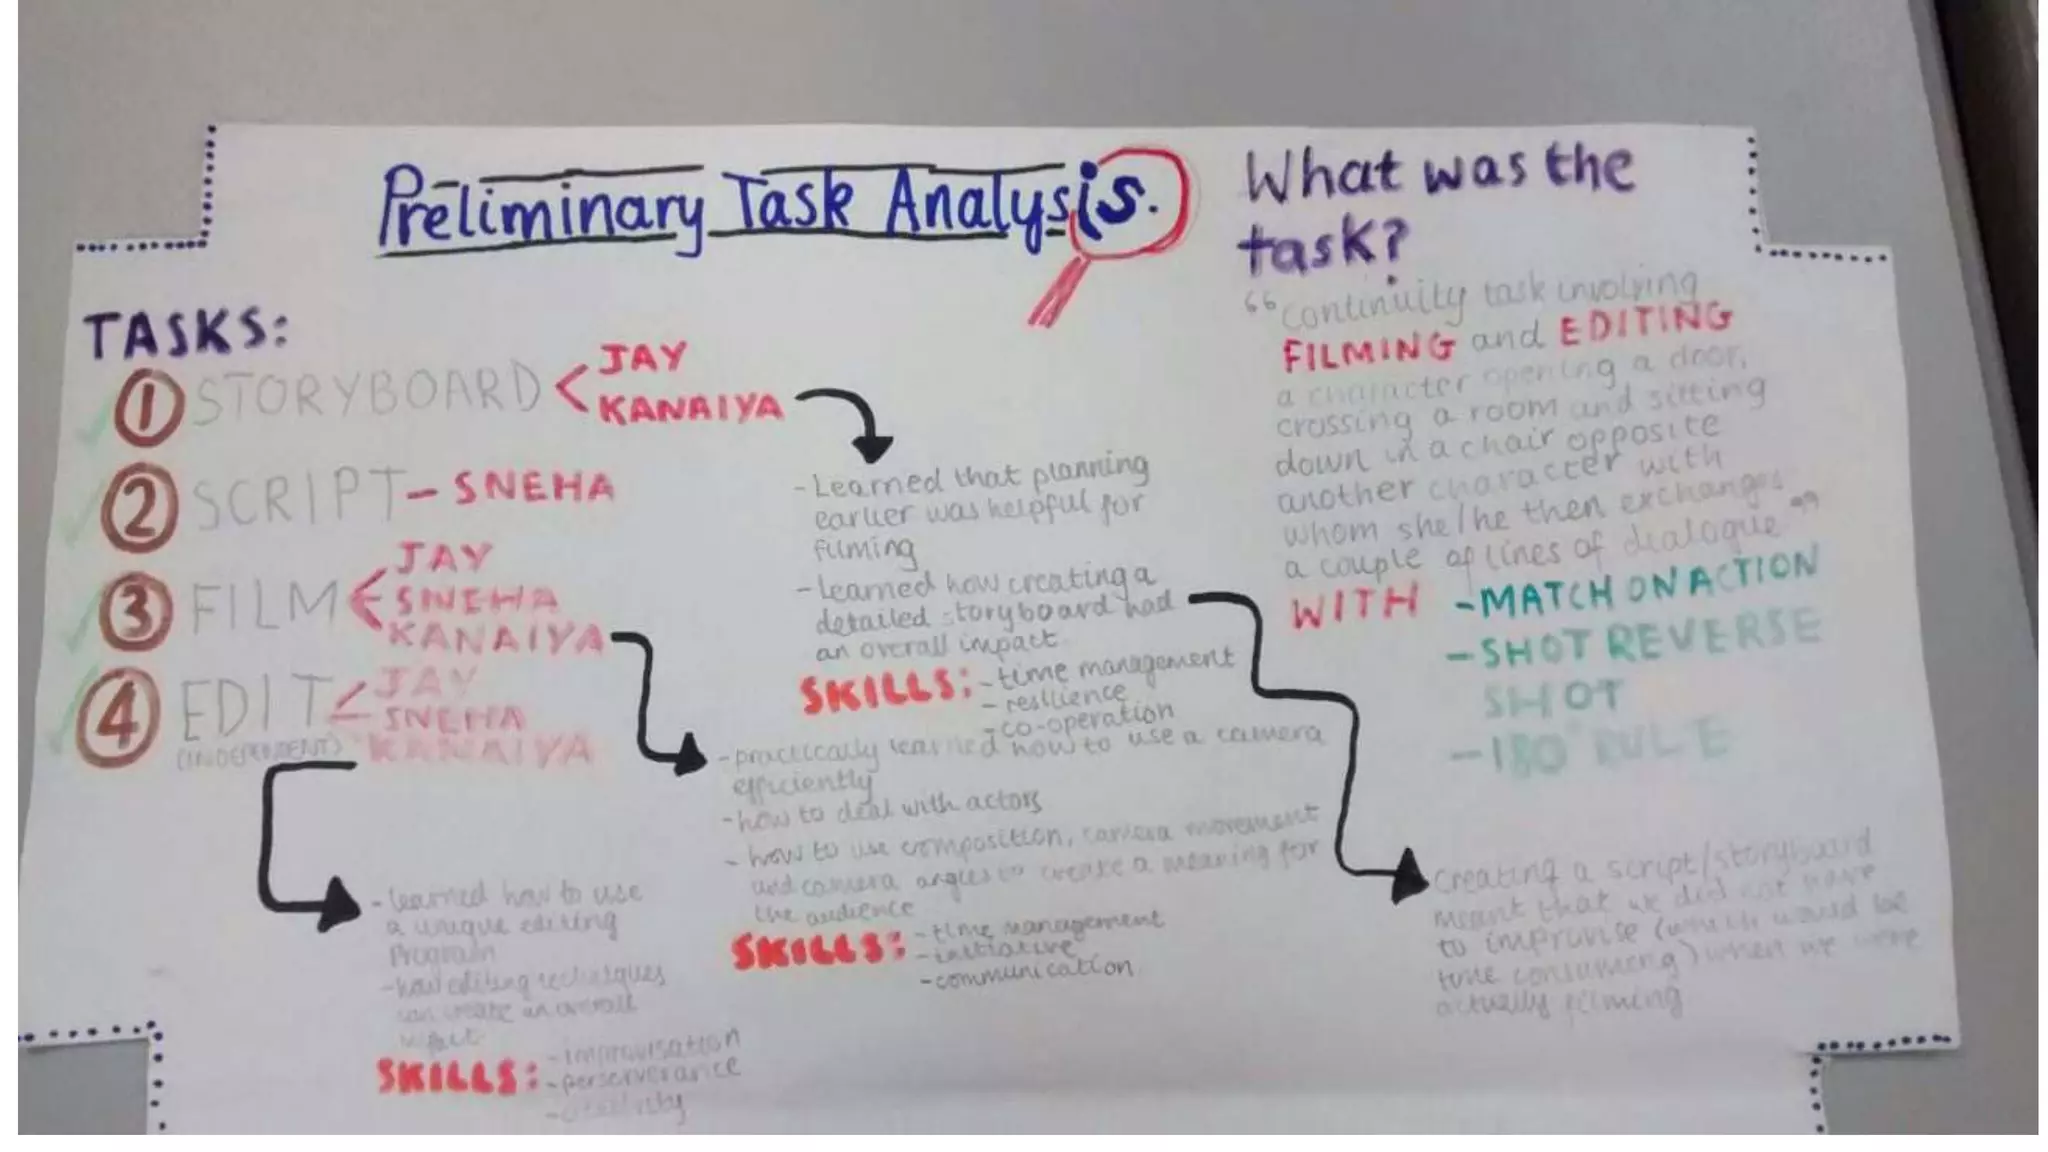 Preliminary Task Analysis.
TASKS:
1 STORYBOARD
JAY
KANAIYA
2 SCRIPT - SNEHA
3 FILM
JAY
SNEHA
KANAIYA
4 EDIT
(INDEPENDENT)
JAY
SNEHA
KANAIYA
- Learned that planning
earlier was helpful for
filming
- learned how creating a
detailed storyboard had
an overall impact
SKILLS: - time management
- resilience
- co-operation
- practically learned how to use a camera
efficiently
- how to deal with actors
- how to use composition, camera movement
and camera angles to create a meaning for
the audience
SKILLS: - time management
- initiative
- communication
- learned how to use
a unique editing
Program
- how editing techniques
can create an overall
impact
SKILLS: - improvisation
- perserverance
- creativity
What was the
task?
“continuity task involving
FILMING and EDITING
a character opening a door,
crossing a room and sitting
down in a chair opposite
another character with
whom she/he then exchanges
a couple of lines of dialogue”
WITH - MATCH ON ACTION
- SHOT REVERSE
SHOT
- 180° RULE
Creating a script/storyboard
meant that we did not have
to improvise (which would be
time consuming) when we were
actually filming